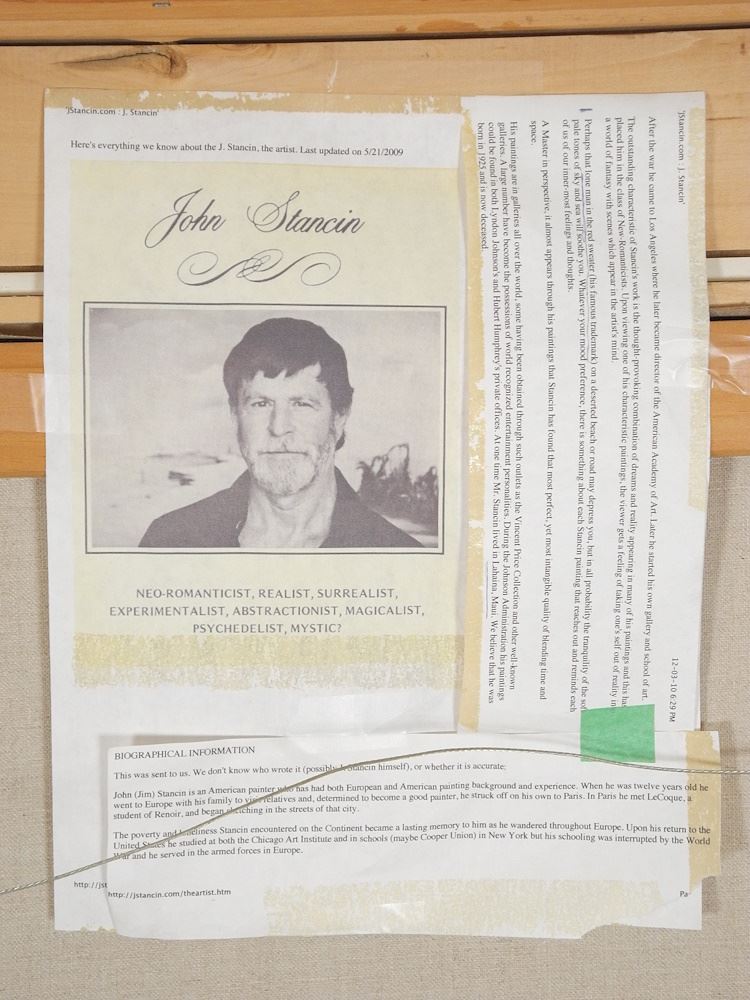 'JStancin.com : J. Stancin'
Here's everything we know about the J. Stancin, the artist. Last updated on 5/21/2009
John Stancin
NEO-ROMANTICIST, REALIST, SURREALIST,
EXPERIMENTALIST, ABSTRACTIONIST, MAGICALIST,
PSYCHEDELIST, MYSTIC?
BIOGRAPHICAL INFORMATION
This was sent to us. We don't know who wrote it (possibly J. Stancin himself), or whether it is accurate;
John (Jim) Stancin is an American painter who has had both European and American painting background and experience. When he was twelve years old he
went to Europe with his family to visit relatives and, determined to become a good painter, he struck off on his own to Paris. In Paris he met LeCoque, a
student of Renoir, and began sketching in the streets of that city.
The poverty and loneliness Stancin encountered on the Continent became a lasting memory to him as he wandered throughout Europe. Upon his return to the
United States he studied at both the Chicago Art Institute and in schools (maybe Cooper Union) in New York but his schooling was interrupted by the World
War and he served in the armed forces in Europe.
http://jst
http://jstancin.com/theartist.htm
Pa
'JStancin.com : J. Stancin'
12-03-10 6:29 PM
After the war he came to Los Angeles where he later became director of the American Academy of Art. Later he started his own gallery and school of art.
The outstanding characteristic of Stancin's work is the thought-provoking combination of dreams and reality appearing in many of his paintings and this has
placed him in the class of New-Romanticists. Upon viewing one of his characteristic paintings, the viewer gets a feeling of taking one's self out of reality in
a world of fantasy with scenes which appear in the artist's mind.
Perhaps that lone man in the red sweater (his famous trademark) on a deserted beach or road may depress you, but in all probability the tranquility of the sof
pale tones of sky and sea will soothe you. Whatever your mood preference, there is something about each Stancin painting that reaches out and reminds each
of us of our inner-most feelings and thoughts.
A Master in perspective, it almost appears through his paintings that Stancin has found that most perfect, yet most intangible quality of blending time and
space.
His paintings are in galleries all over the world, some having been obtained through such outlets as the Vincent Price Collection and other well-known
galleries. A large number have become the possessions of world recognized entertainment personalities. During the Johnson Administration his paintings
could be found in both Lyndon Johnson's and Hubert Humphrey's private offices. At one time Mr. Stancin lived in Lahaina, Maui. We believe that he was
born in 1925 and is now deceased.